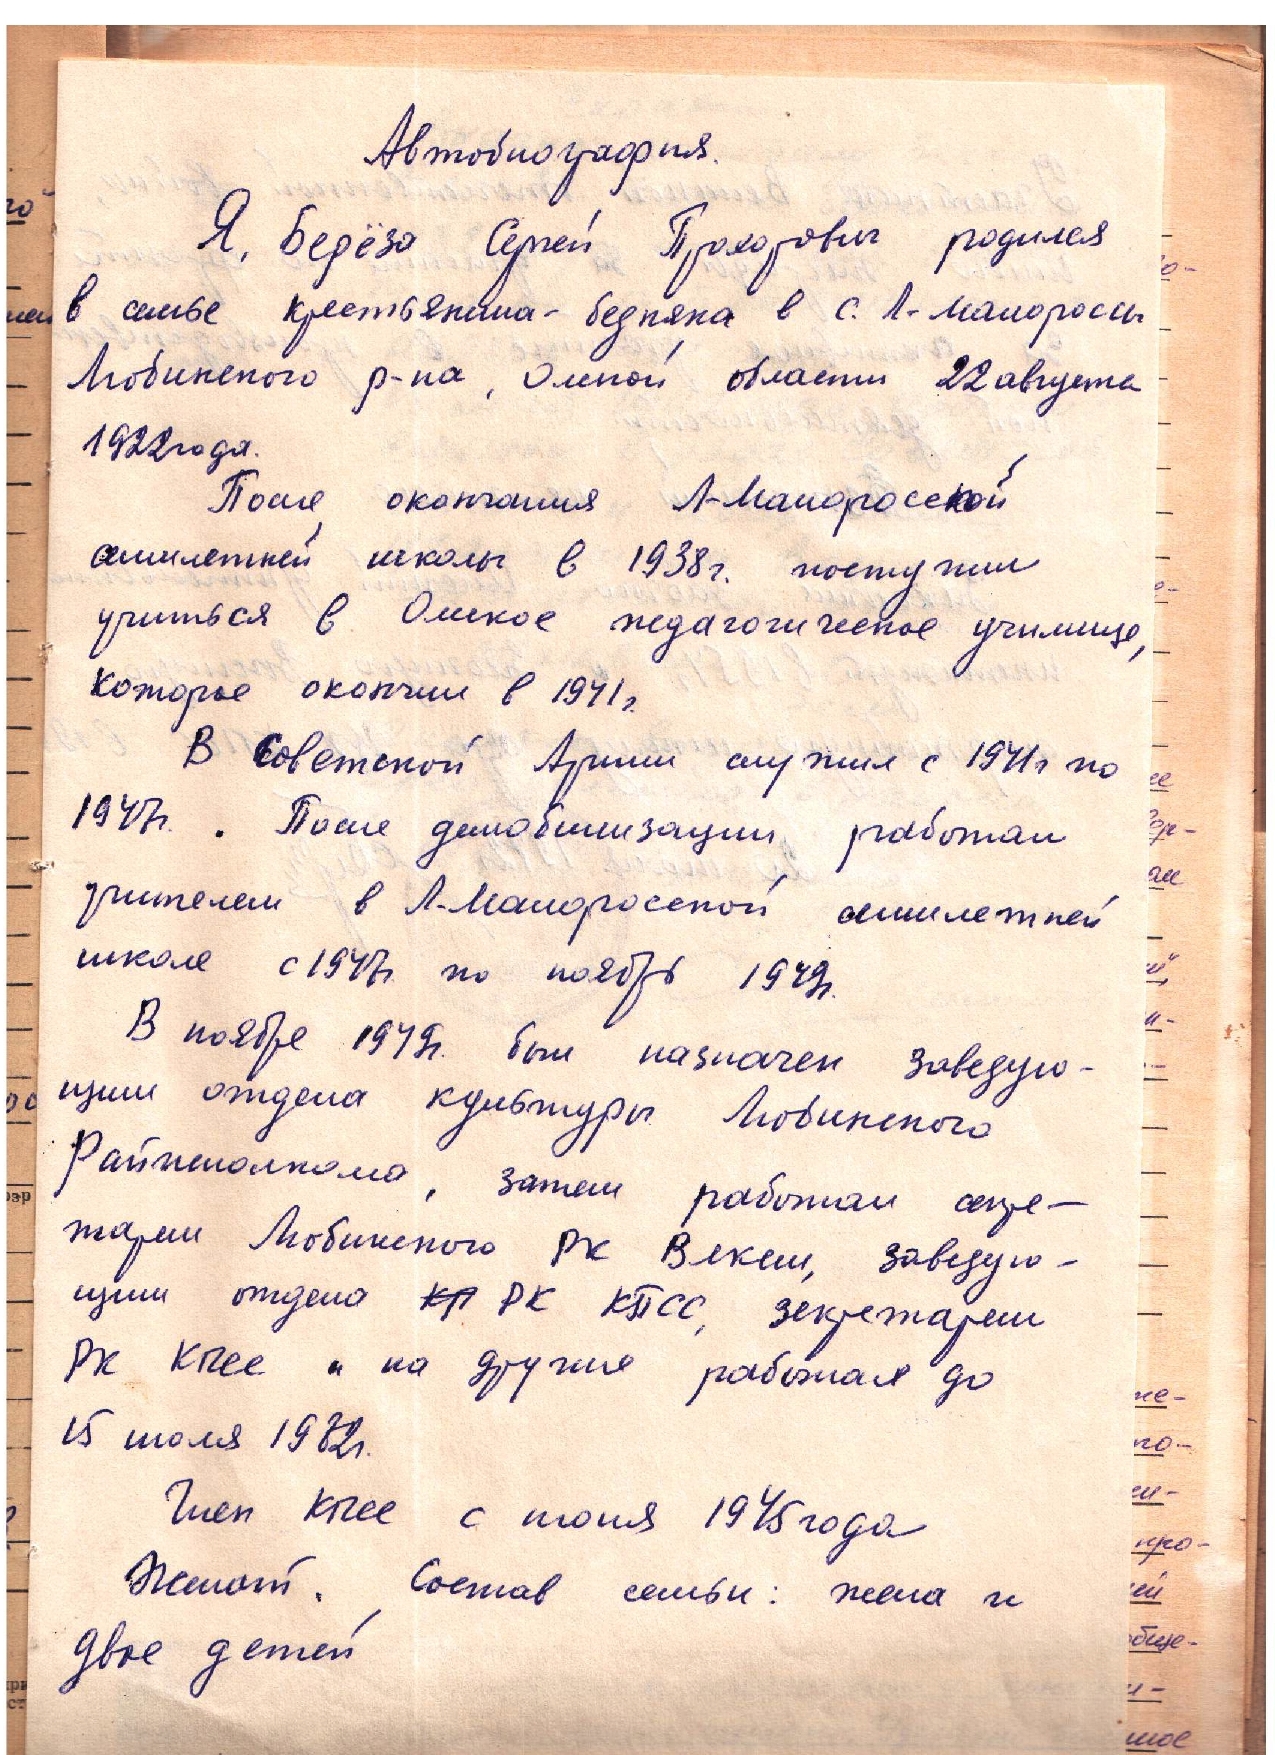 Автобиография.
Я, Берёза Сергей Прохорович родился
в семье крестьянина-бедняка в с. Л-Малороссы
Любинского р-на, Омской области 22 августа
1922 года.
После окончания Л-Малоросской
семилетней школы в 1938 г. поступил
учиться в Омское педагогическое училище,
которое окончил в 1941 г.
В Советской Армии служил с 1941 г по
1947 г. . После демобилизации работал
учителем в Л-Малоросской семилетней
школе с 1947 г. по ноябрь 1949 г.
В ноябре 1949 г. был назначен заведую-
щим отдела культуры Любинского
Райисполкома, затем работал секре-
тарем Любинского РК ВЛКСМ, заведую-
щим отдела РК КПСС, секретарем
РК КПСС и на других работах до
15 июля 1982 г.
Член КПСС с июня 1945 года
Женат. Состав семьи: жена и
двое детей